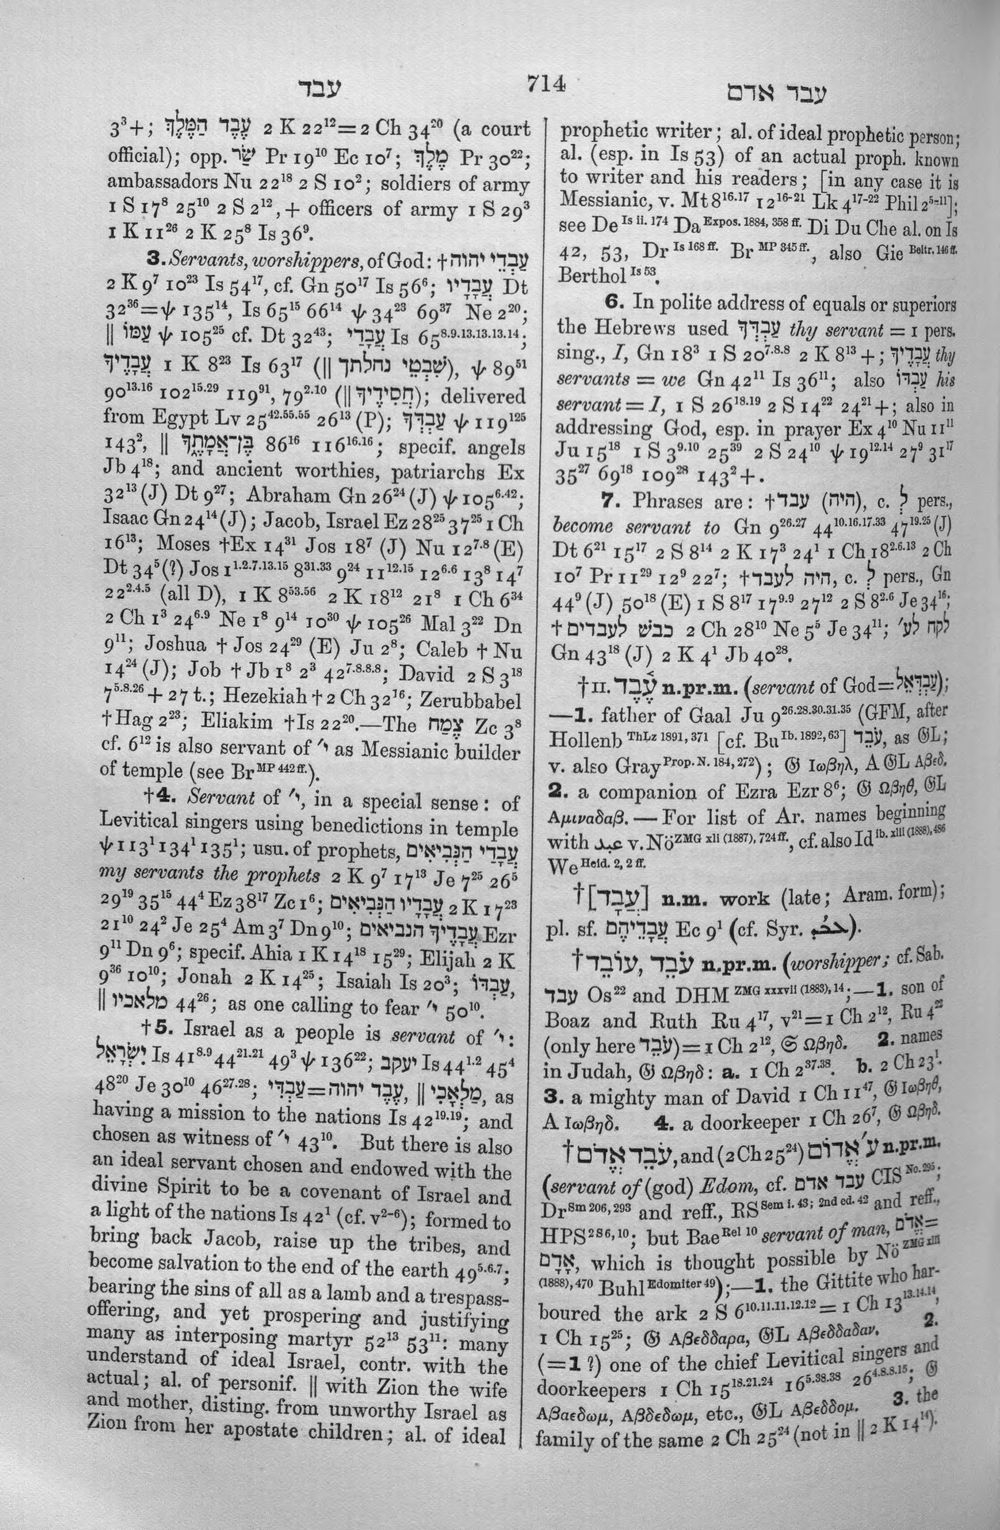 עבד
714
עבד אדם
3³+; עֶבֶד הַמֶּלֶךְ 2 K 22¹²=2 Ch 34²⁰ (a court
official); opp. שַׂר Pr 19¹⁰ Ec 10⁷; מֶלֶךְ Pr 30²²;
ambassadors Nu 22¹⁸ 2 S 10²; soldiers of army
1 S 17⁸ 25¹⁰ 2 S 2¹², + officers of army 1 S 29³
1 K 11²⁶ 2 K 25⁸ Is 36⁹.
3. Servants, worshippers, of God: †עַבְדֵי יהוה
2 K 9⁷ 10²³ Is 54¹⁷, cf. Gn 50¹⁷ Is 56⁶; עֲבָדָיו Dt
32³⁶=ψ 135¹⁴, Is 65¹⁵ 66¹⁴ ψ 34²³ 69³⁷ Ne 2²⁰;
|| עַמּוֹ ψ 105²⁵ cf. Dt 32⁴³; עֲבָדַי Is 65⁸·⁹·¹³·¹³·¹³·¹⁴;
עֲבָדֶיךָ 1 K 8²³ Is 63¹⁷ (|| שִׁבְטֵי נחלתך), ψ 89⁵¹
90¹³·¹⁶ 102¹⁵·²⁹ 119⁹¹, 79²·¹⁰ (|| חֲסִידֶיךָ); delivered
from Egypt Lv 25⁴²·⁵⁵·⁵⁵ 26¹³ (P); עַבְדְּךָ ψ 119¹²⁵
143², || בֶּן־אֲמָתֶךָ 86¹⁶ 116¹⁶·¹⁶; specif. angels
Jb 4¹⁸; and ancient worthies, patriarchs Ex
32¹³ (J) Dt 9²⁷; Abraham Gn 26²⁴ (J) ψ 105⁶·⁴²;
Isaac Gn 24¹⁴ (J); Jacob, Israel Ez 28²⁵ 37²⁵ 1 Ch
16¹³; Moses †Ex 14³¹ Jos 18⁷ (J) Nu 12⁷·⁸ (E)
Dt 34⁵(?) Jos 1¹·²·⁷·¹³·¹⁵ 8³¹·³³ 9²⁴ 11¹²·¹⁵ 12⁶·⁶ 13⁸ 14⁷
22²·⁴·⁵ (all D), 1 K 8⁵³·⁵⁶ 2 K 18¹² 21⁸ 1 Ch 6³⁴
2 Ch 1³ 24⁶·⁹ Ne 1⁸ 9¹⁴ 10³⁰ ψ 105²⁶ Mal 3²² Dn
9¹¹; Joshua † Jos 24²⁹ (E) Ju 2⁸; Caleb † Nu
14²⁴ (J); Job † Jb 1⁸ 2³ 42⁷·⁸·⁸·⁸; David 2 S 3¹⁸
7⁵·⁸·²⁶ + 27 t.; Hezekiah † 2 Ch 32¹⁶; Zerubbabel
†Hag 2²³; Eliakim †Is 22²⁰.—The צֶמַח Zc 3⁸
cf. 6¹² is also servant of ׳י as Messianic builder
of temple (see Br ᴹᴾ ⁴⁴² ᶠᶠ·).
†4. Servant of ׳י, in a special sense: of
Levitical singers using benedictions in temple
ψ 113¹ 134¹ 135¹; usu. of prophets, עֲבָדַי הַנְּבִיאִים
my servants the prophets 2 K 9⁷ 17¹³ Je 7²⁵ 26⁵
29¹⁹ 35¹⁵ 44⁴ Ez 38¹⁷ Zc 1⁶; עֲבָדָיו הַנְּבִיאִים 2 K 17²³
21¹⁰ 24² Je 25⁴ Am 3⁷ Dn 9¹⁰; עֲבָדֶיךָ הנביאים Ezr
9¹¹ Dn 9⁶; specif. Ahia 1 K 14¹⁸ 15²⁹; Elijah 2 K
9³⁶ 10¹⁰; Jonah 2 K 14²⁵; Isaiah Is 20³; עַבְדּוֹ,
|| מלאכיו 44²⁶; as one calling to fear ׳י 50¹⁰.
†5. Israel as a people is servant of ׳י:
יִשְׂרָאֵל Is 41⁸·⁹ 44²¹·²¹ 49³ ψ 136²²; יעקב Is 44¹·² 45⁴
48²⁰ Je 30¹⁰ 46²⁷·²⁸; עֶבֶד יהוה=עַבְדִּי, || מַלְאָכִי, as
having a mission to the nations Is 42¹⁹·¹⁹; and
chosen as witness of ׳י 43¹⁰. But there is also
an ideal servant chosen and endowed with the
divine Spirit to be a covenant of Israel and
a light of the nations Is 42¹ (cf. v²⁻⁶); formed to
bring back Jacob, raise up the tribes, and
become salvation to the end of the earth 49⁵·⁶·⁷;
bearing the sins of all as a lamb and a trespass-
offering, and yet prospering and justifying
many as interposing martyr 52¹³ 53¹¹: many
understand of ideal Israel, contr. with the
actual; al. of personif. || with Zion the wife
and mother, disting. from unworthy Israel as
Zion from her apostate children; al. of ideal
prophetic writer; al. of ideal prophetic person;
al. (esp. in Is 53) of an actual proph. known
to writer and his readers; [in any case it is
Messianic, v. Mt 8¹⁶·¹⁷ 12¹⁶⁻²¹ Lk 4¹⁷⁻²² Phil 2⁵⁻¹¹];
see De ᴵˢ ⁱⁱ· ¹⁷⁴ Da ᴱˣᵖᵒˢ· ¹⁸⁸⁴, ³⁵⁸ ᶠᶠ· Di Du Che al. on Is
42, 53, Dr ᴵˢ ¹⁶⁸ ᶠᶠ· Br ᴹᴾ ³⁴⁵ ᶠᶠ·, also Gie ᴮᵉⁱᵗʳ· ¹⁴⁶ ᶠᶠ·
Berthol ᴵˢ ⁵³.
6. In polite address of equals or superiors
the Hebrews used עַבְדְּךָ thy servant = 1 pers.
sing., I, Gn 18³ 1 S 20⁷·⁸·⁸ 2 K 8¹³ +; עֲבָדֶיךָ thy
servants = we Gn 42¹¹ Is 36¹¹; also עַבְדּוֹ his
servant = I, 1 S 26¹⁸·¹⁹ 2 S 14²² 24²¹ +; also in
addressing God, esp. in prayer Ex 4¹⁰ Nu 11¹¹
Ju 15¹⁸ 1 S 3⁹·¹⁰ 25³⁹ 2 S 24¹⁰ ψ 19¹²·¹⁴ 27⁹ 31¹⁷
35²⁷ 69¹⁸ 109²⁸ 143² +.
7. Phrases are: †עבד (היה), c. לְ pers.,
become servant to Gn 9²⁶·²⁷ 44¹⁰·¹⁶·¹⁷·³³ 47¹⁹·²⁵ (J)
Dt 6²¹ 15¹⁷ 2 S 8¹⁴ 2 K 17³ 24¹ 1 Ch 18²·⁶·¹³ 2 Ch
10⁷ Pr 11²⁹ 12⁹ 22⁷; †היה לעבד, c. לְ pers., Gn
44⁹ (J) 50¹⁸ (E) 1 S 8¹⁷ 17⁹·⁹ 27¹² 2 S 8²·⁶ Je 34¹⁶;
†כבש לעבדים 2 Ch 28¹⁰ Ne 5⁵ Je 34¹¹; לקח לע׳
Gn 43¹⁸ (J) 2 K 4¹ Jb 40²⁸.
†II. עֶבֶד n.pr.m. (servant of God=עַבְדְּאֵל);
—1. father of Gaal Ju 9²⁶·²⁸·³⁰·³¹·³⁵ (GFM, after
Hollenb ᵀʰᴸᶻ ¹⁸⁹¹, ³⁷¹ [cf. Bu ᴵᵇ· ¹⁸⁹², ⁶³] עֹבֵד, as 𝔊L;
v. also Gray ᴾʳᵒᵖ· ᴺ· ¹⁸⁴, ²⁷²); 𝔊 Ιωβηλ, A 𝔊L Αβεδ.
2. a companion of Ezra Ezr 8⁶; 𝔊 Ωβηθ, 𝔊L
Αμιναδαβ. — For list of Ar. names beginning
with عبد v. Nö ᶻᴹᴳ ˣˡⁱ ⁽¹⁸⁸⁷⁾, ⁷²⁴ ᶠᶠ·, cf. also Id ⁱᵇ· ˣˡⁱⁱ ⁽¹⁸⁸⁸⁾, ⁴⁸⁶
We ᴴᵉⁱᵈ· ², ² ᶠᶠ·
†[עֲבָד] n.m. work (late; Aram. form);
pl. sf. עֲבָדֵיהֶם Ec 9¹ (cf. Syr. ܥܒܳܕܳܐ).
†עֹבֵד, עוֹבֵד n.pr.m. (worshipper; cf. Sab.
עבד Os²² and DHM ᶻᴹᴳ ˣˣˣᵛⁱⁱ ⁽¹⁸⁸³⁾, ¹⁴;—1. son of
Boaz and Ruth Ru 4¹⁷, v²¹=1 Ch 2¹², Ru 4²²
(only here עֹבֵד)=1 Ch 2¹², 𝔊 Ωβηδ. 2. names
in Judah, 𝔊 Ωβηδ: a. 1 Ch 2³⁷·³⁸. b. 2 Ch 23¹.
3. a mighty man of David 1 Ch 11⁴⁷, 𝔊 Ιωβηθ,
A Ιωβηδ. 4. a doorkeeper 1 Ch 26⁷, 𝔊 Ωβηδ.
†עֹבֵד אֱדֹם, and (2 Ch 25²⁴) ע׳ אֱדוֹם n.pr.m.
(servant of (god) Edom, cf. עבד אדם CIS ᴺᵒ· ²⁹⁵;
Dr ˢᵐ ²⁰⁶, ²⁹³ and reff., RS ˢᵉᵐ ⁱ· ⁴³; ²ⁿᵈ ᵉᵈ· ⁴² and reff.,
HPS ²⁸⁶, ¹⁰; but Bae ᴿᵉˡ ¹⁰ servant of man, אֱדֹם=
אָדָם, which is thought possible by Nö ᶻᴹᴳ ˣˡⁱⁱ
(1888), 470 Buhl ᴱᵈᵒᵐⁱᵗᵉʳ ⁴⁹);—1. the Gittite who har-
boured the ark 2 S 6¹⁰·¹¹·¹¹·¹²·¹² = 1 Ch 13¹³·¹⁴·¹⁴,
1 Ch 15²⁵; 𝔊 Αβεδδαρα, 𝔊L Αβεδδαδαν. 2.
(=1 ?) one of the chief Levitical singers and
doorkeepers 1 Ch 15¹⁸·²¹·²⁴ 16⁵·³⁸·³⁸ 26⁴·⁸·⁸·¹⁵; 𝔊
Αβαεδωμ, Αβδεδωμ, etc., 𝔊L Αβεδδομ. 3. the
family of the same 2 Ch 25²⁴ (not in || 2 K 14¹⁴).